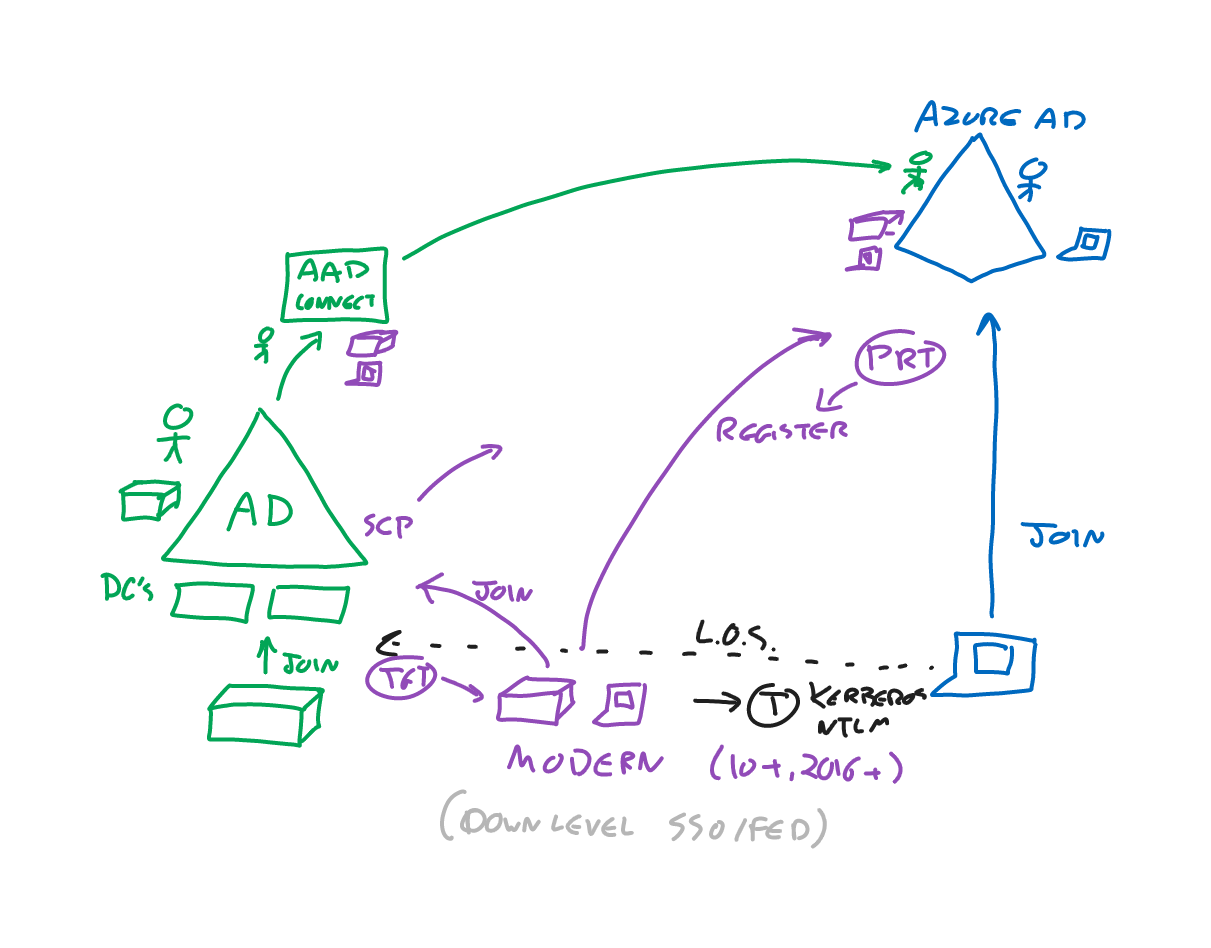 AZURE AD
AAD
CONNECT
PRT
REGISTER
AD
SCP
JOIN
DC's
JOIN
JOIN
L.O.S.
TGT
T
KERBEROS
NTLM
MODERN (10+, 2016+)
(DOWN LEVEL SSO/FED)